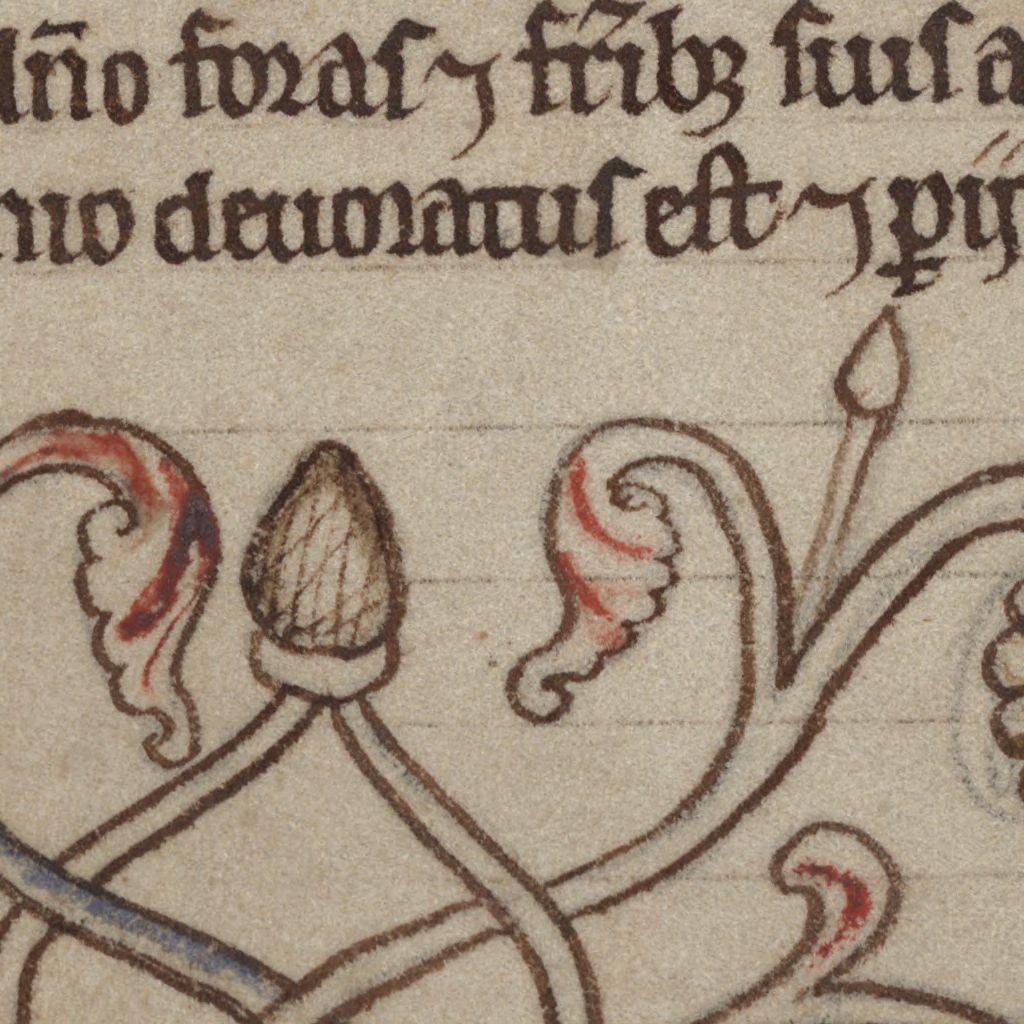 dn̄o foras ⁊ fr̄ibꝫ suis a
no deuoratus est ⁊ ꝑ